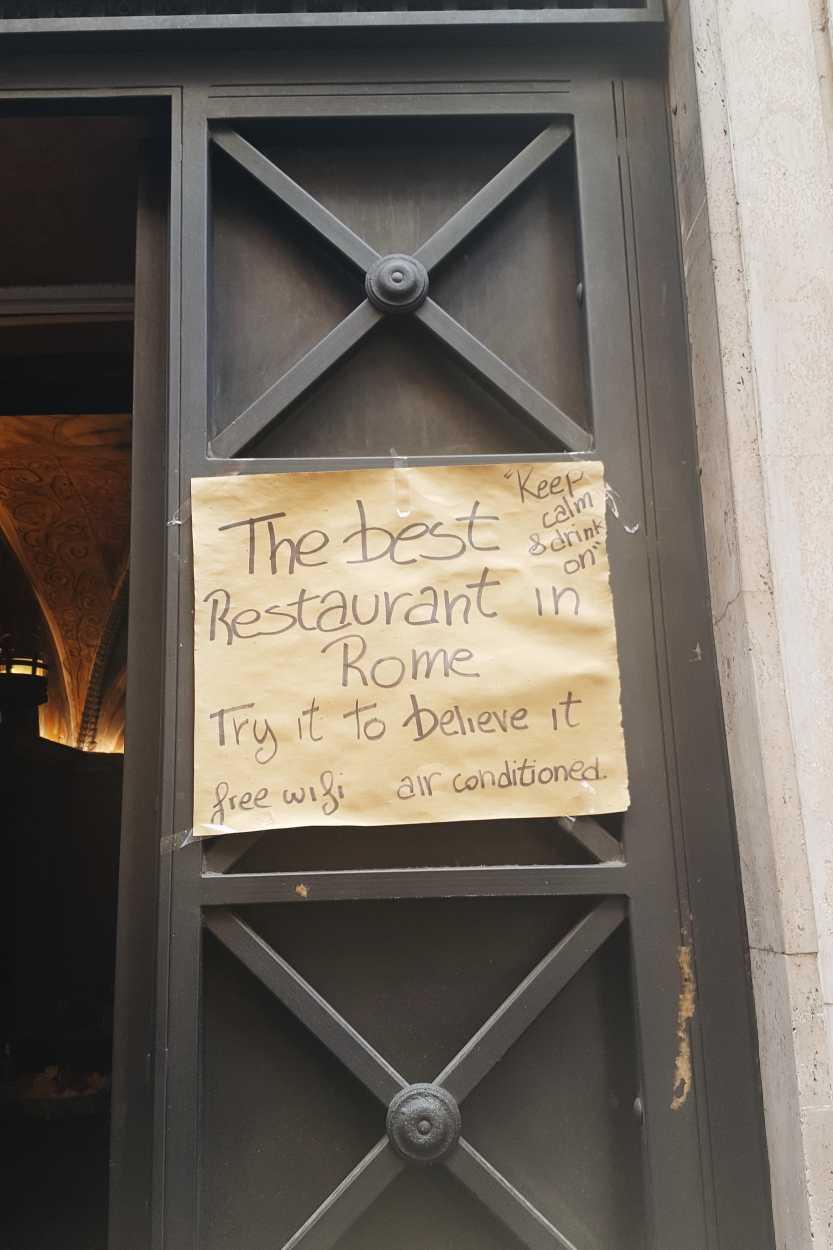 The best
Restaurant in
Rome
Try it to believe it
free wifi air conditioned.
"Keep
calm
& drink
on"